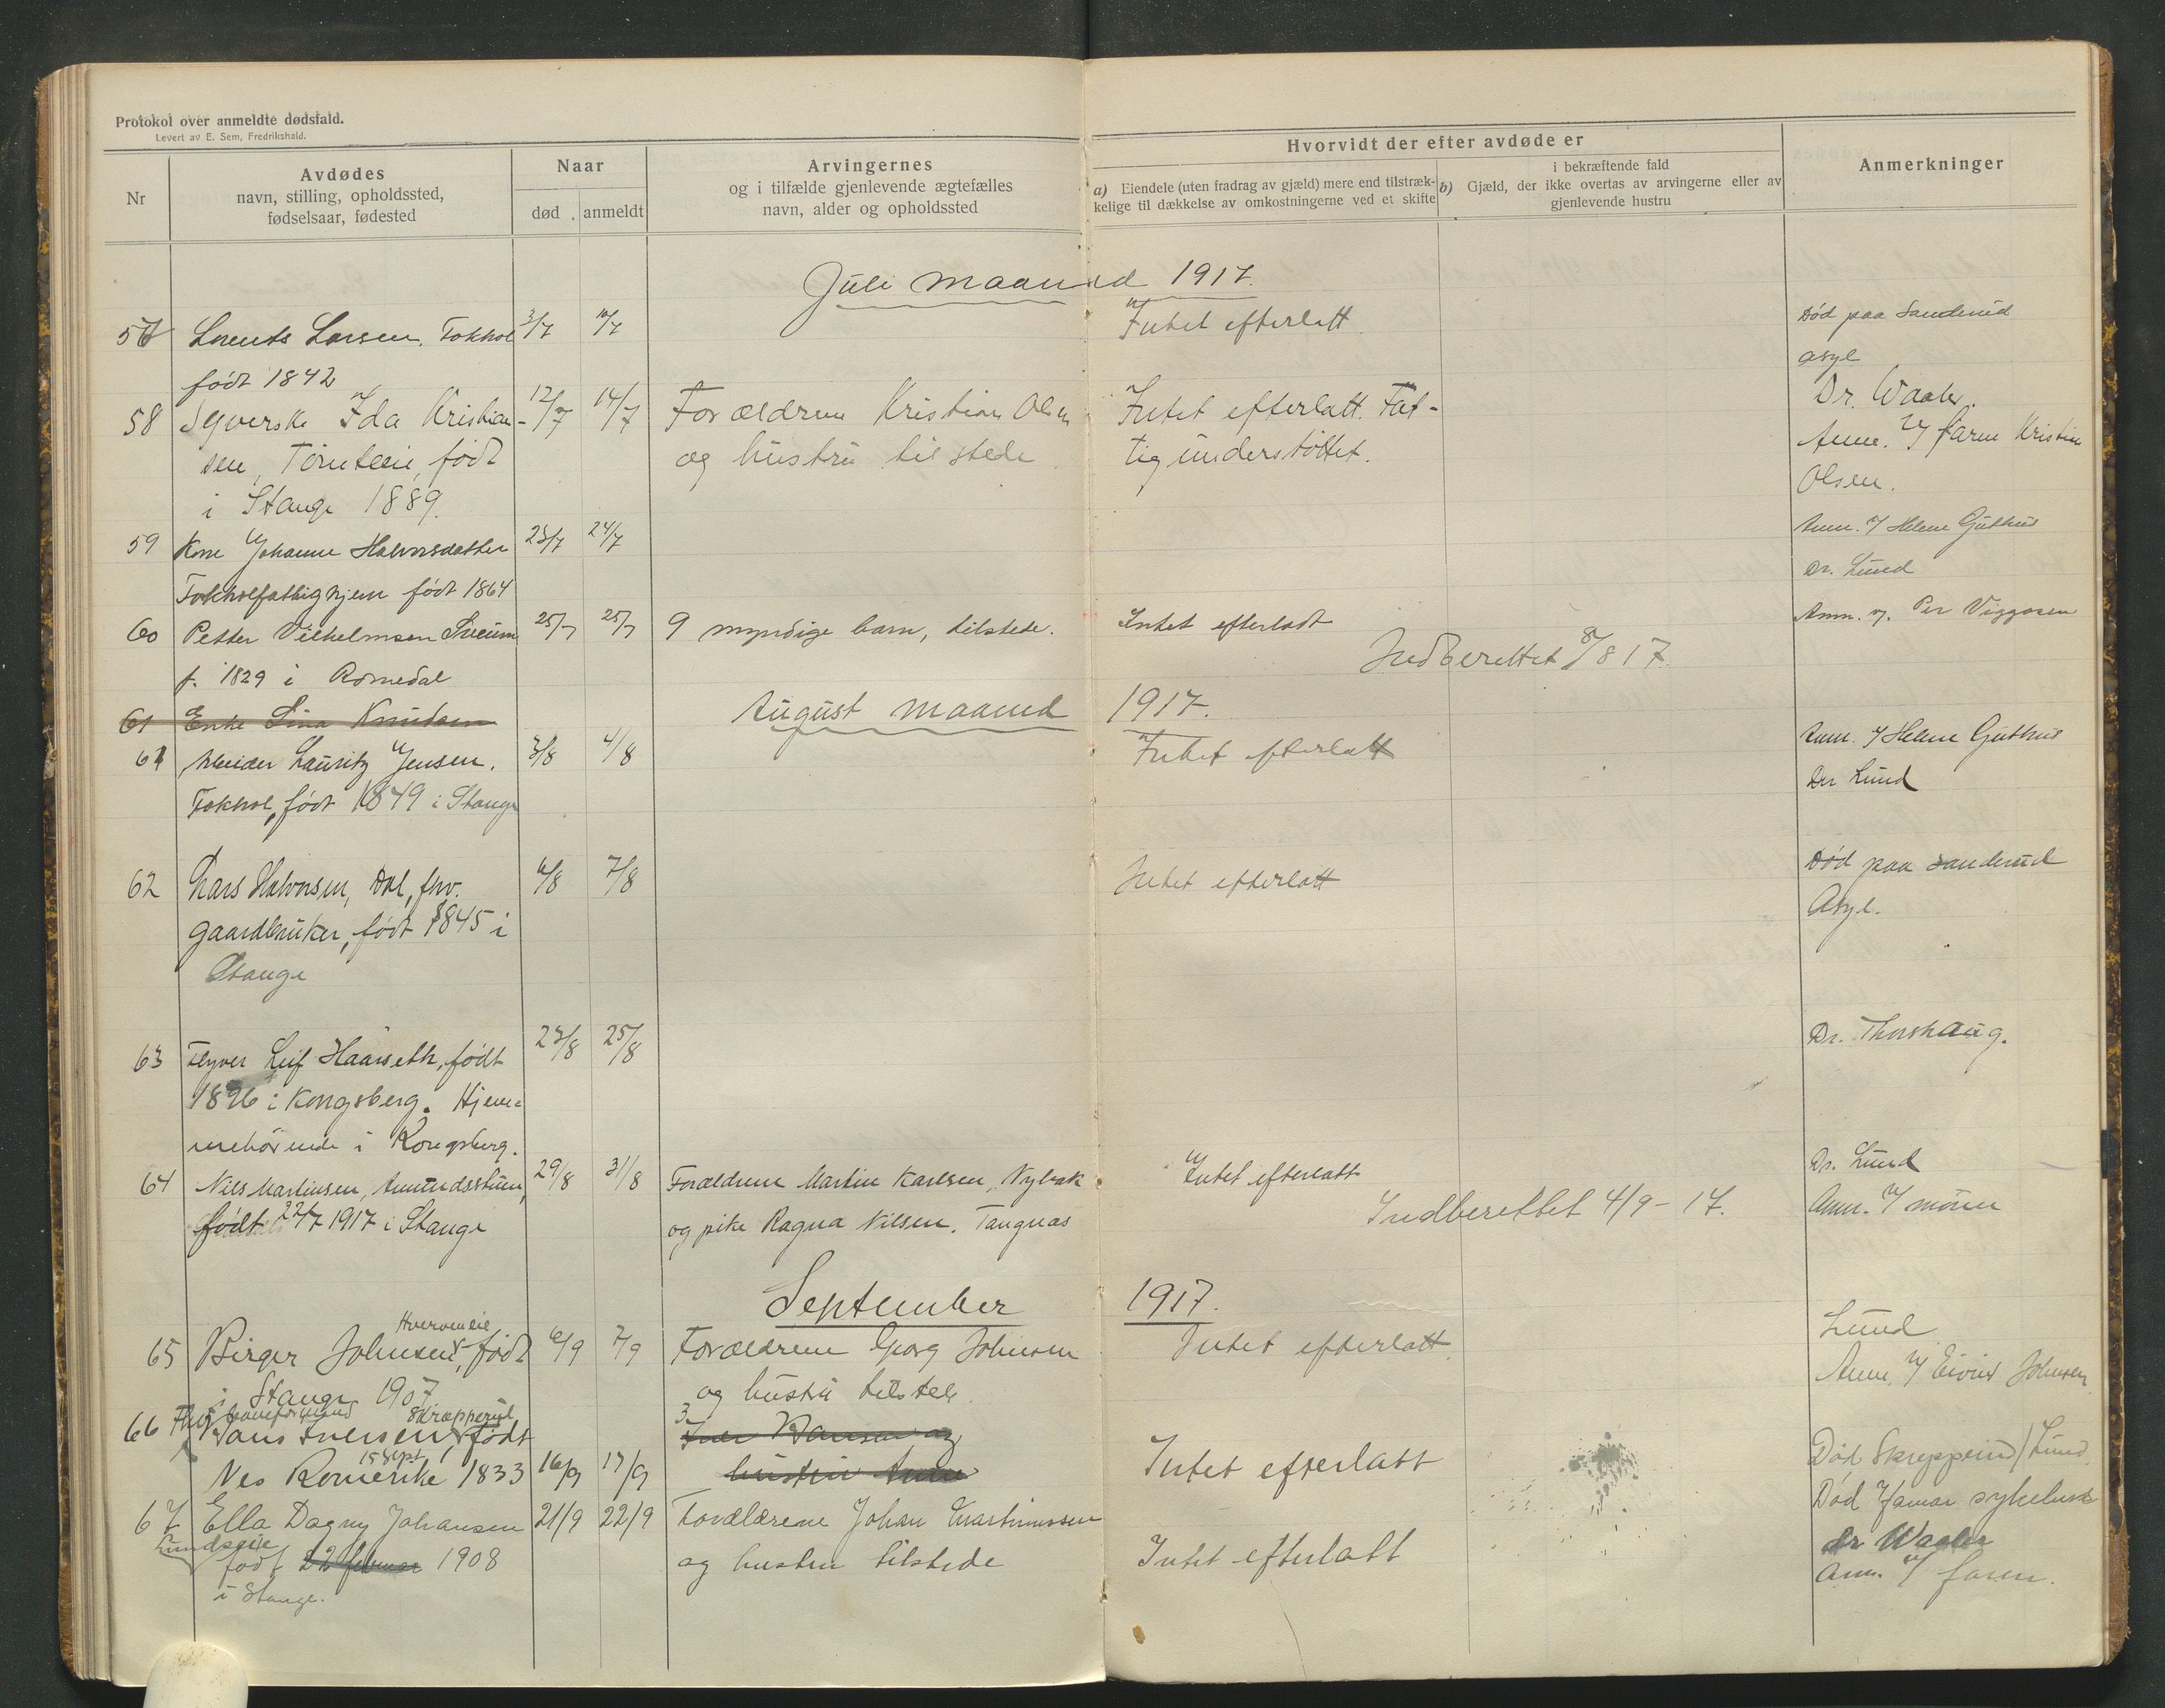 Protokol over anmeldte dødsfald.
Levert av E. Sem, Fredrikshald.
Nr
Avdødes
navn, stilling, opholdssted,
fødselsaar, fødested
Naar
død
anmeldt
Arvingernes
og i tilfælde gjenlevende ægtefælles
navn, alder og opholdssted
Hvorvidt der efter avdøde er
a) Eiendele (uten fradrag av gjæld) mere end tilstræk-
kelige til dækkelse av omkostningerne ved et skifte
i bekræftende fald
b) Gjæld, der ikke overtas av arvingerne eller av
gjenlevende hustru
Anmerkninger
Juli maaned 1917.
57 Lorents Larsen, Tokhol 3/7 Intet efterlatt Død paa Sanderud
født 1842 asyl
58 Syerske Ida Kristian- 12/7 14/7 Forældrene Kristian Olsen Intet efterlatt. Fat- Dr. Waaler.
sen, født og hustru tilstede tigunderstøttet. Anm. v/ faren Kristian
i Stange 1889. Olsen.
59 Kone Johanne Halvorsdatter 23/7 24/7 Anm. v/ Helene Guthus
Tokholfattighjem født 1864 Dr. Lund
60 Petter Vilhelmsen 25/7 25/7 9 myndige barn, tilstede. Intet efterladt Anm. v. Per Viggosen
f. 1829 i Romedal Indberettet 8/8 17
61 Enke Lina Knudsen
August maaned 1917.
61 Arbeider Lauritz Jensen. 3/8 4/8 Intet efterlatt Anm. v/ Helene Guthus
Tokhol, født 1849 i Stange Dr Lund
62 Lars Halvorsen, Dal, fhv. 6/8 7/8 Intet efterlatt Død paa Sanderud
gaardbruker, født 1845 i Asyl.
Stange
63 Flyver Leif Haarseth, født 23/8 25/8 Dr. Thorshaug.
1896 i Kongsberg. Hjem-
mehørende i Kongsberg.
64 Nils Martinsen, Amundsstuen, 29/8 31/8 Forældrene Martin Karlsen, Nybak Intet efterlatt Dr. Lund
født 22/7 1917 i Stange og pike Ragna Nilsen, Tangnes Indberettet 4/9 - 17. Anm. v/ moren
September 1917.
65 Birger Johnsen, født 6/9 7/9 Forældrene Georg Johnsen Intet efterlatt. Lund
i Stange 1907 og hustru tilstede Anm. v/ Eivind Johnsen
66 Hans Iversen Skrepperud født 3
15 Sept
Nes Romerike 1833 16/9 17/9 hustru Intet efterlatt Død Skrepperud / Lund
67 Ella Dagny Johansen 21/9 22/9 Forældrene Johan Martinussen Død Hamar sykehus
Lundseie
født 22 februar 1908 og hustru tilstede Intet efterlatt dr Waaler
i Stange. Anm. v/ faren.